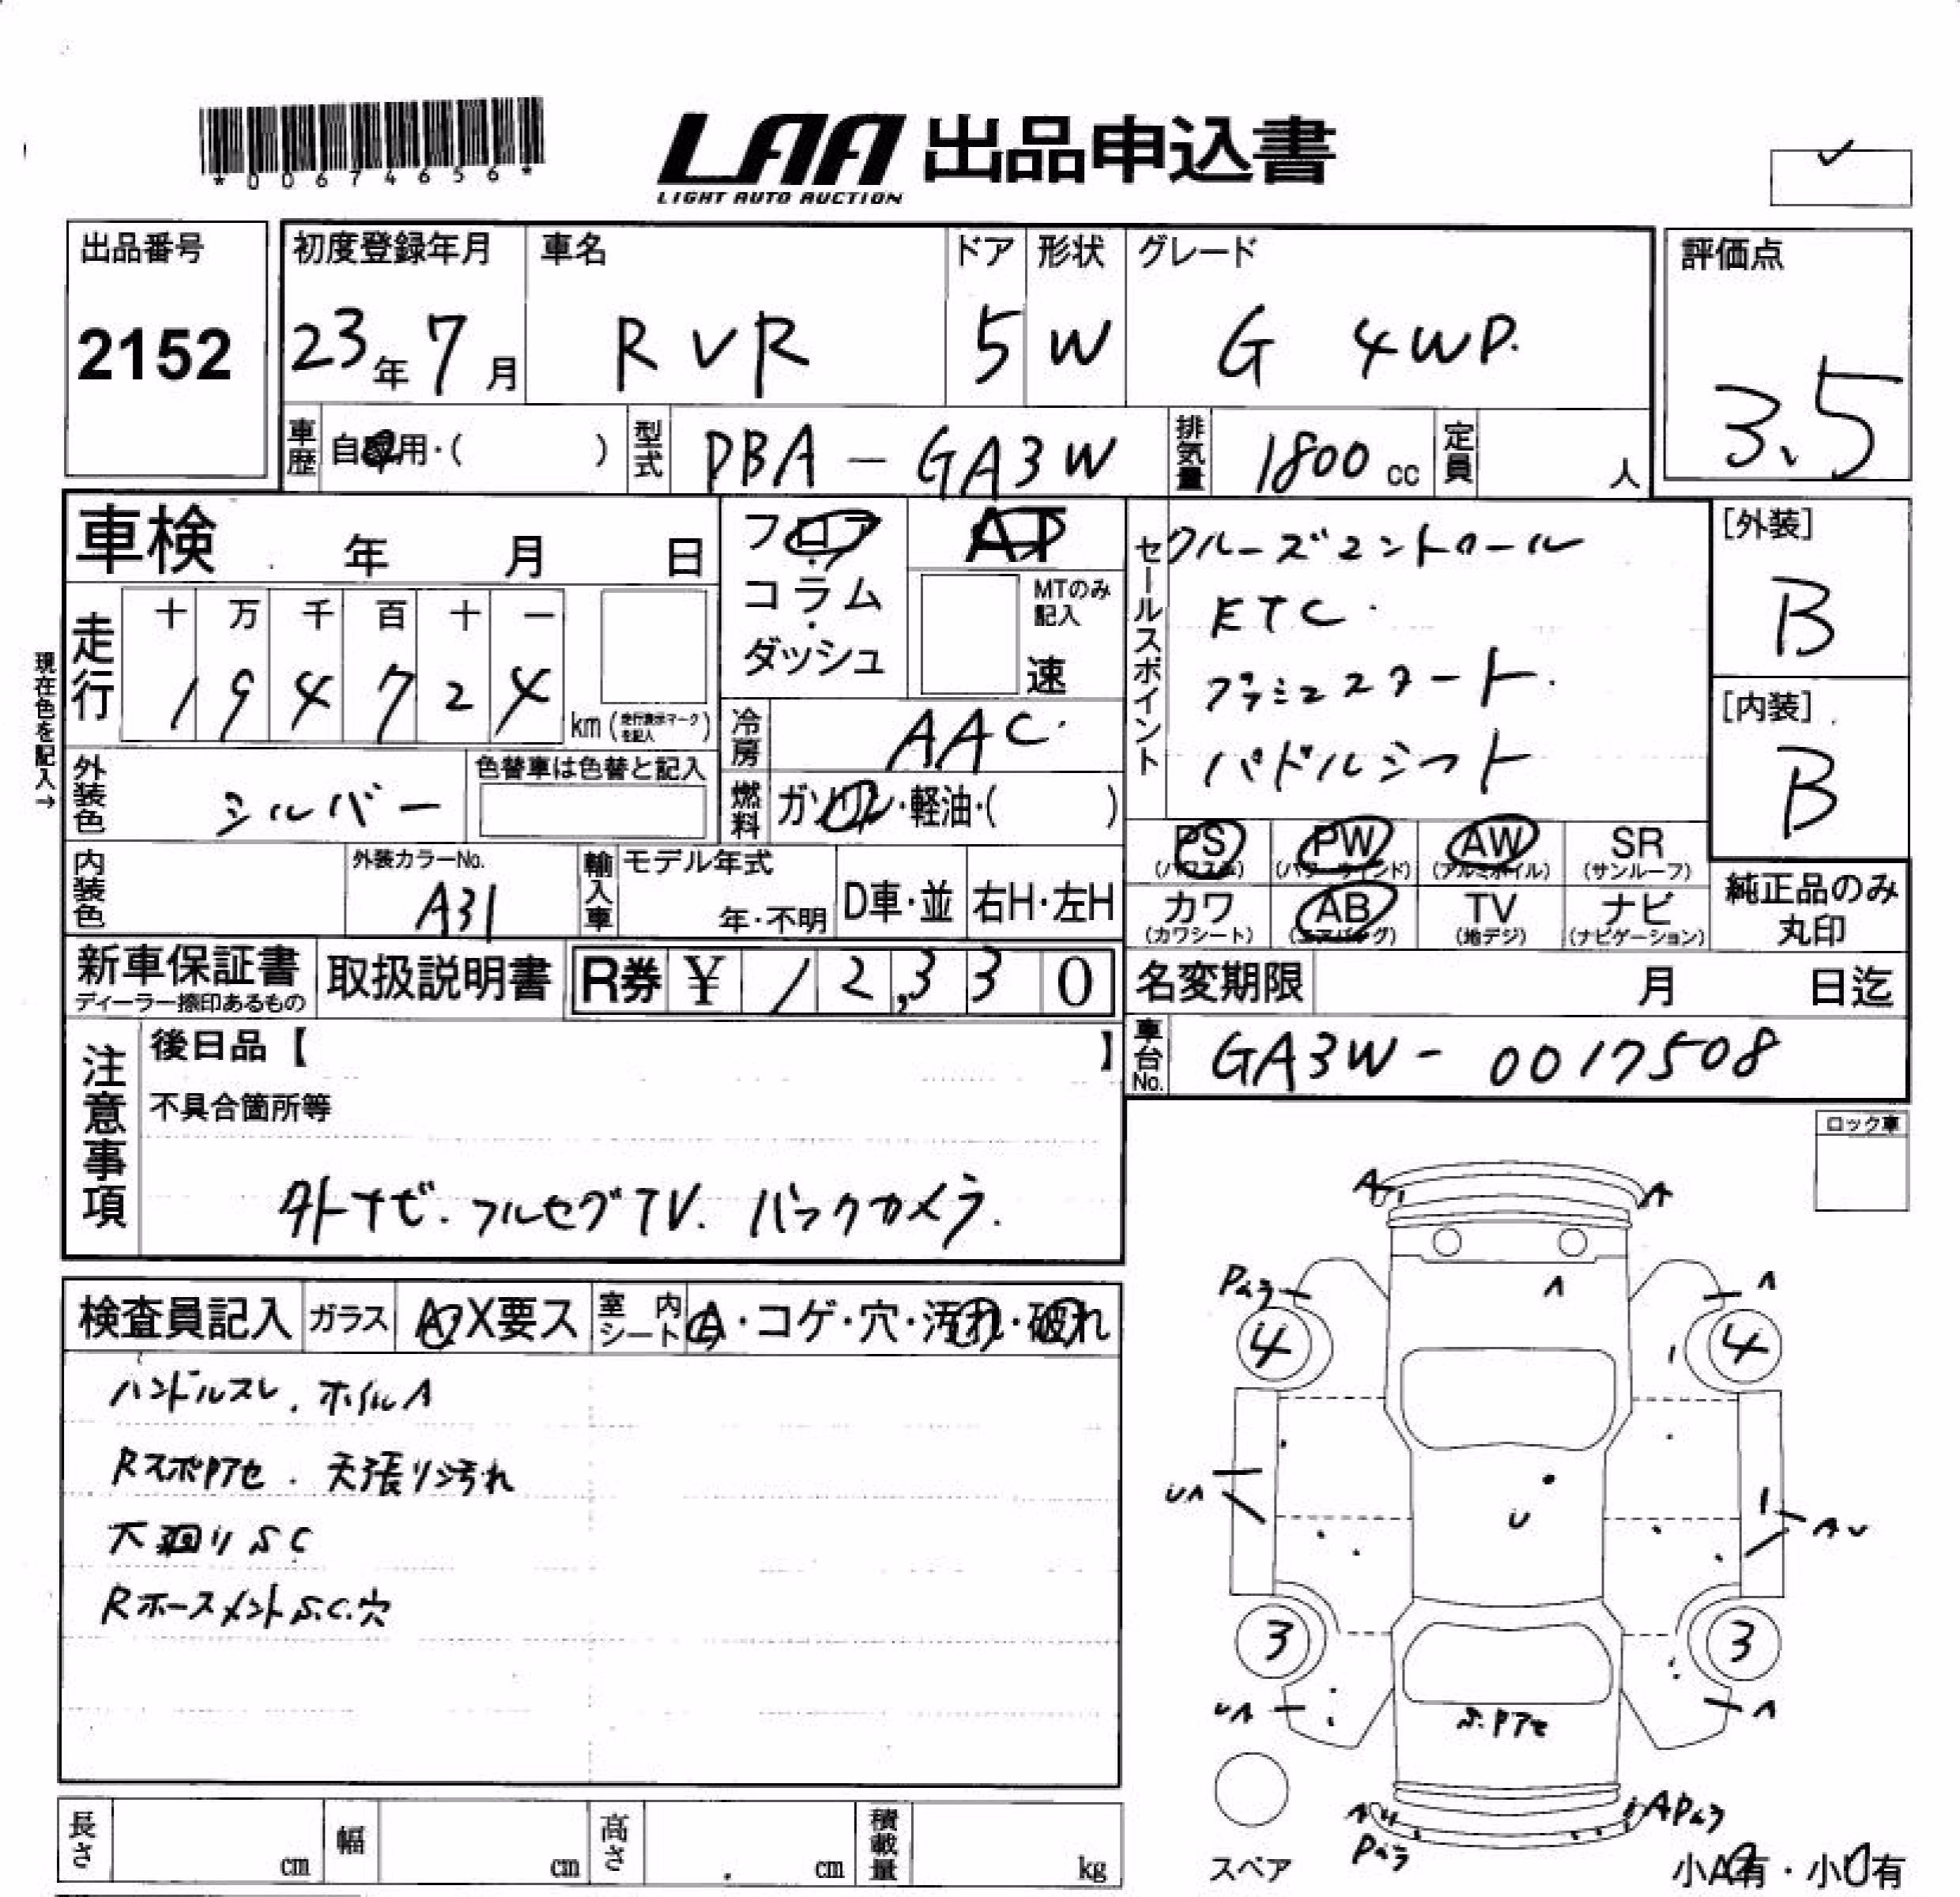 *00674656*
LAA 出品申込書
LIGHT AUTO AUCTION
出品番号
2152
初度登録年月
23年 7月
車名
RVR
ドア
5
形状
W
グレード
G 4WD.
評価点
3.5
車歴
自家用・( )
型式
DBA-GA3W
排気量
1800 cc
定員
人
車検 年 月 日
走行
十 万 千 百 十 一
1 9 4 7 2 4
km (走行表示マークを記入)
現在色を記入→
フロア・コラム・ダッシュ
AT
MTのみ記入
速
冷房
AAC
燃料
ガソリン・軽油・( )
外装色
シルバー
色替車は色替と記入
内装色
外装カラーNo.
A31
輸入車
モデル年式
年・不明
D車・並
右H・左H
セールスポイント
クルーズコントロール
ETC.
プッシュスタート.
パドルシフト
[外装]
B
[内装]
B
PS (パワステ)
PW (パワーウィンド)
AW (アルミホイル)
SR (サンルーフ)
カワ (カワシート)
AB (エアバッグ)
TV (地デジ)
ナビ (ナビゲーション)
純正品のみ
丸印
新車保証書
ディーラー捺印あるもの
取扱説明書
R券 ¥ 12,330
名変期限 月 日迄
車台No.
GA3W-0017508
注意事項
後日品【 】
不具合箇所等
外ナビ. フルセグTV. バックカメラ.
ロック車
検査員記入
ガラス
A・X要ス
室内シート
A・コゲ・穴・汚れ・破れ
ハンドルスレ. ホイルA
RスポPアセ. 天張り汚れ
下廻りS.C
RホースメントS.C.穴
A
A
Pムラ
A
A
4
4
UA
U
AU
3
3
UA
A
S.Pアセ
AU
Pムラ
APムラ
スペア
小A有・小U有
長さ cm
幅 cm
高さ cm
積載量 kg